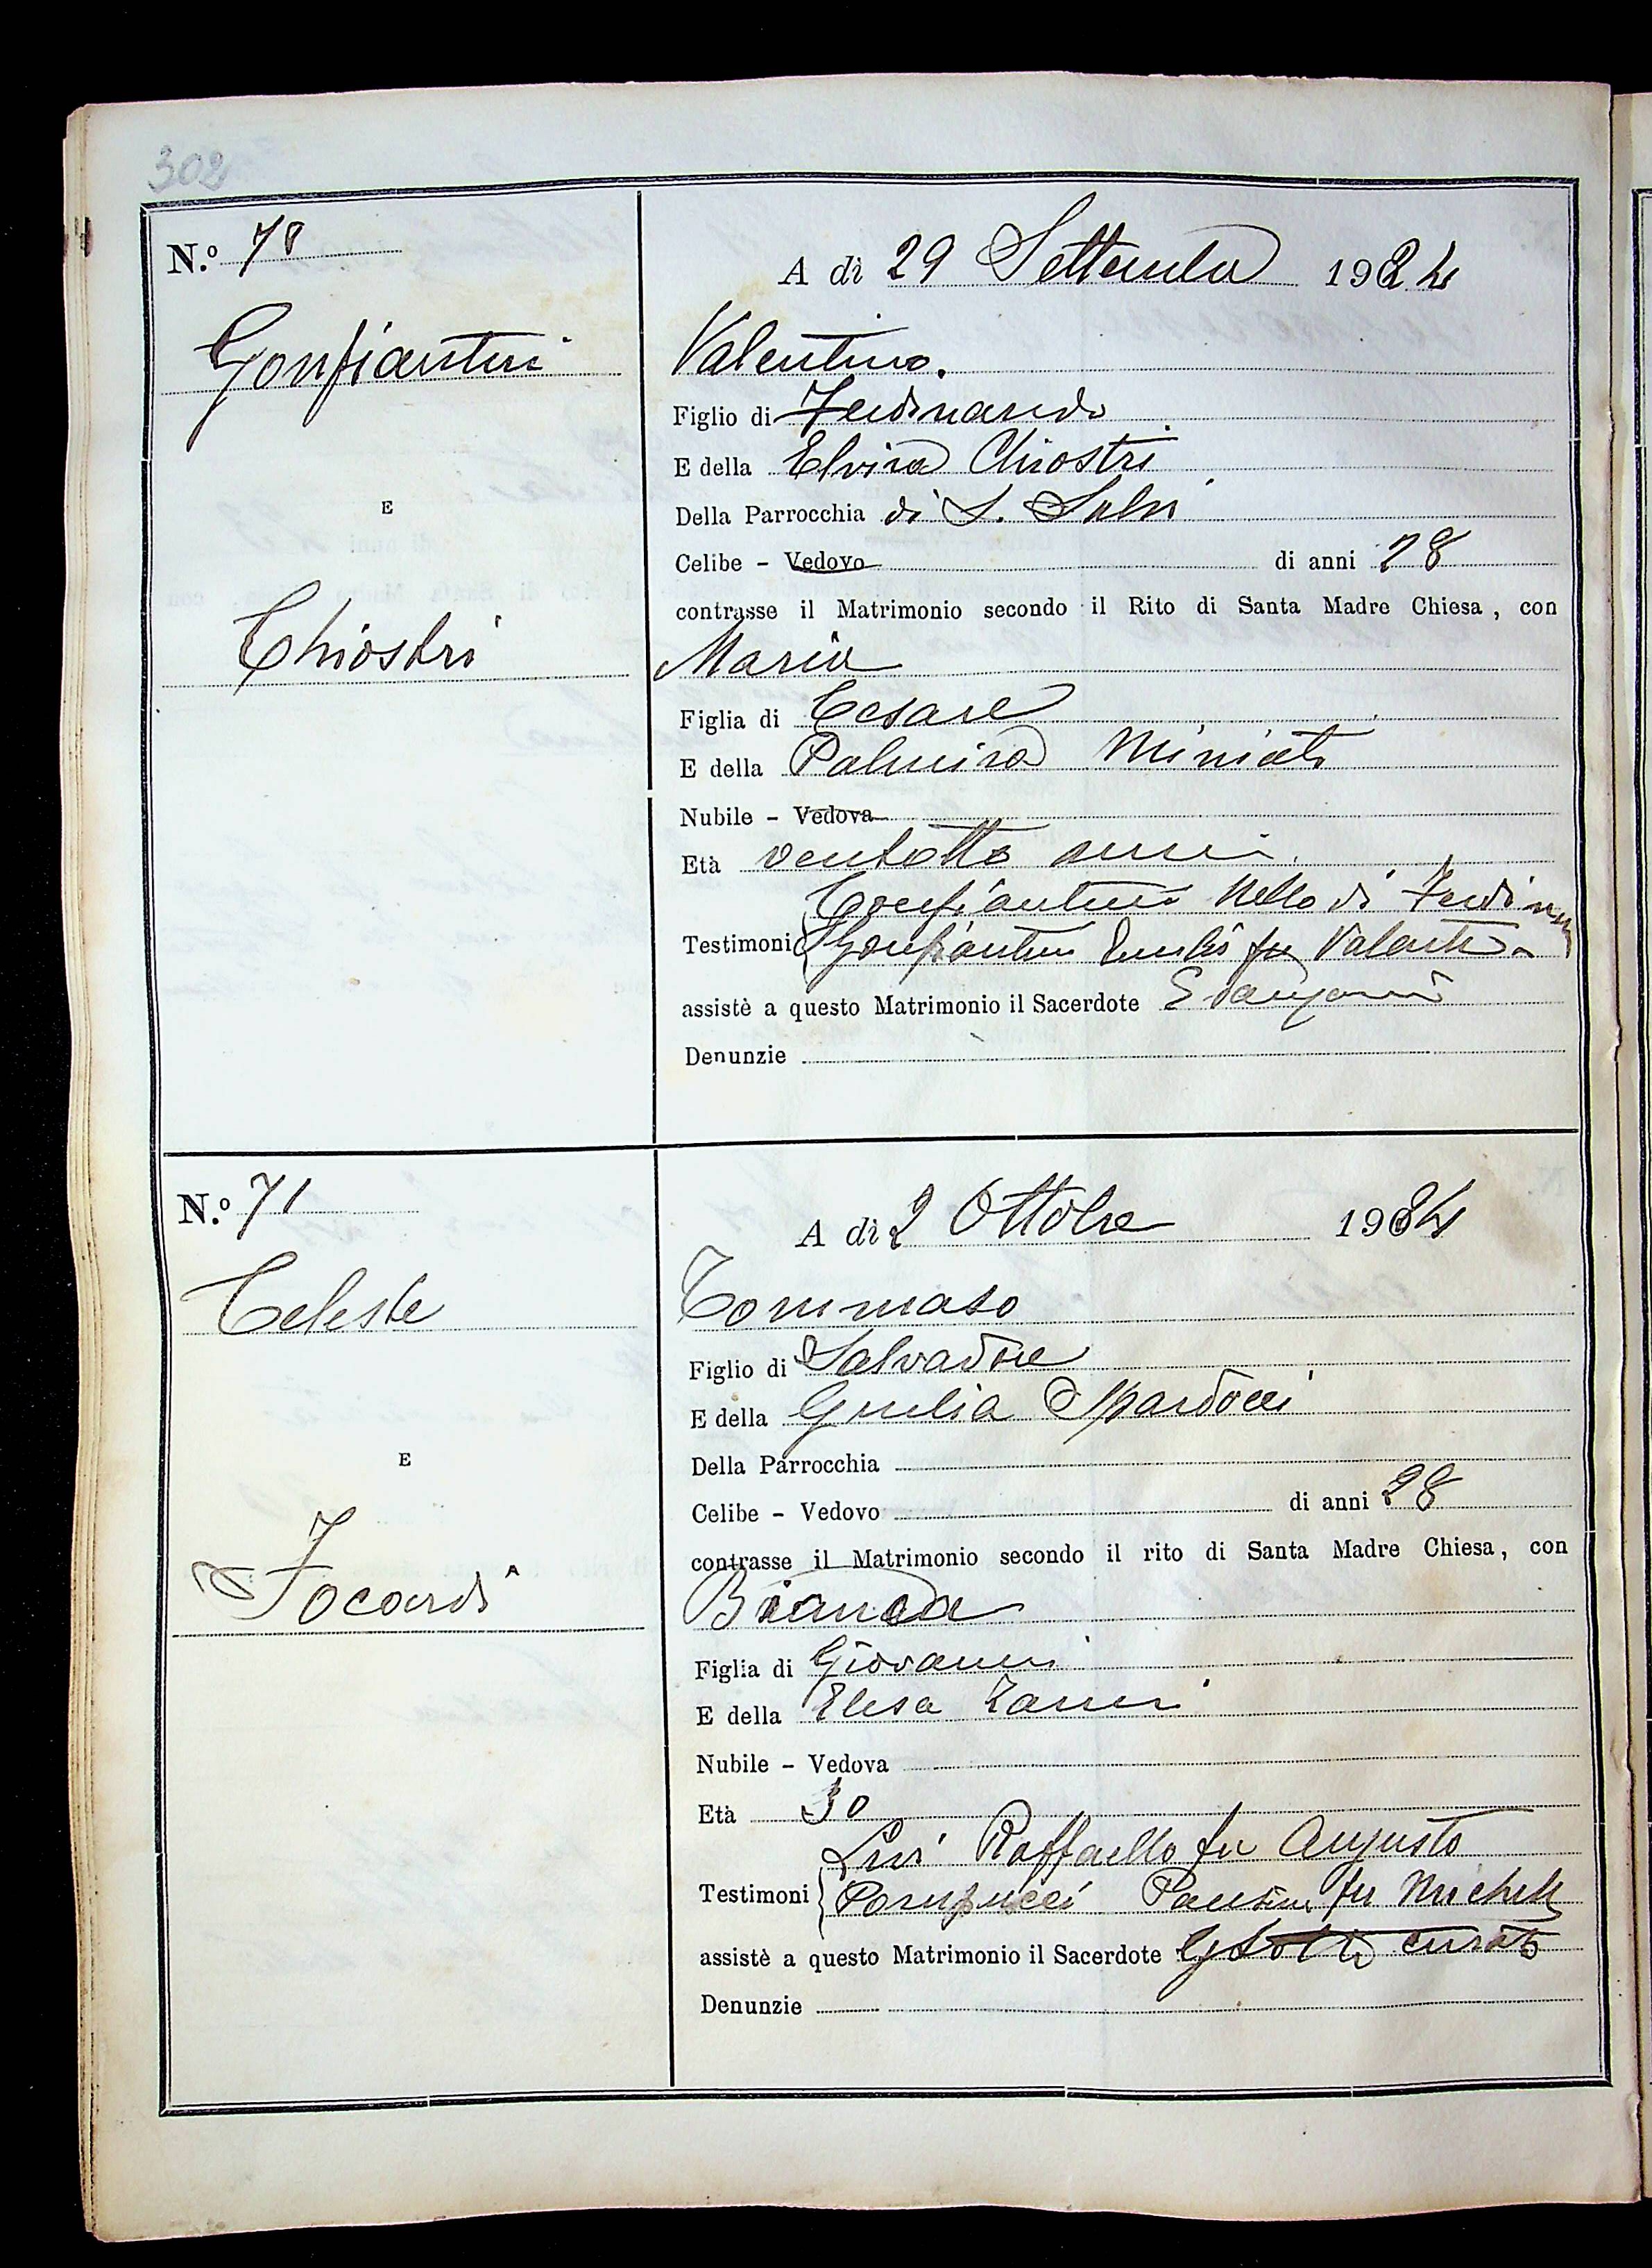 302
N.º 70
A dì 29 Settembre 1924
Gonfiantini
Valentino.
Figlio di Ferdinando
E della Elvira Chiostri
Della Parrocchia di S. Salvi
E
Celibe - Vedovo di anni 28
contrasse il Matrimonio secondo il Rito di Santa Madre Chiesa, con
Chiostri
Maria
Figlia di Cesare
E della Palmira Miniati
Nubile - Vedova
Età ventotto anni.
Gonfiantini Nello di Ferdinan
Testimoni Gonfiantini Emilio fu Valenti
assistè a questo Matrimonio il Sacerdote
Denunzie
N.º 71
A dì 2 Ottobre 1924
Celeste
Tommaso
Figlio di Salvadore
E della Giulia Mardocci
E
Della Parrocchia
Celibe - Vedovo di anni 28
contrasse il Matrimonio secondo il rito di Santa Madre Chiesa, con
Focardi
Bianca
Figlia di Giovanni
E della Elisa Zanni
Nubile - Vedova
Età 30
Livi Raffaello fu Augusto
Testimoni Porcupucci fu Michele
assistè a questo Matrimonio il Sacerdote curato
Denunzie